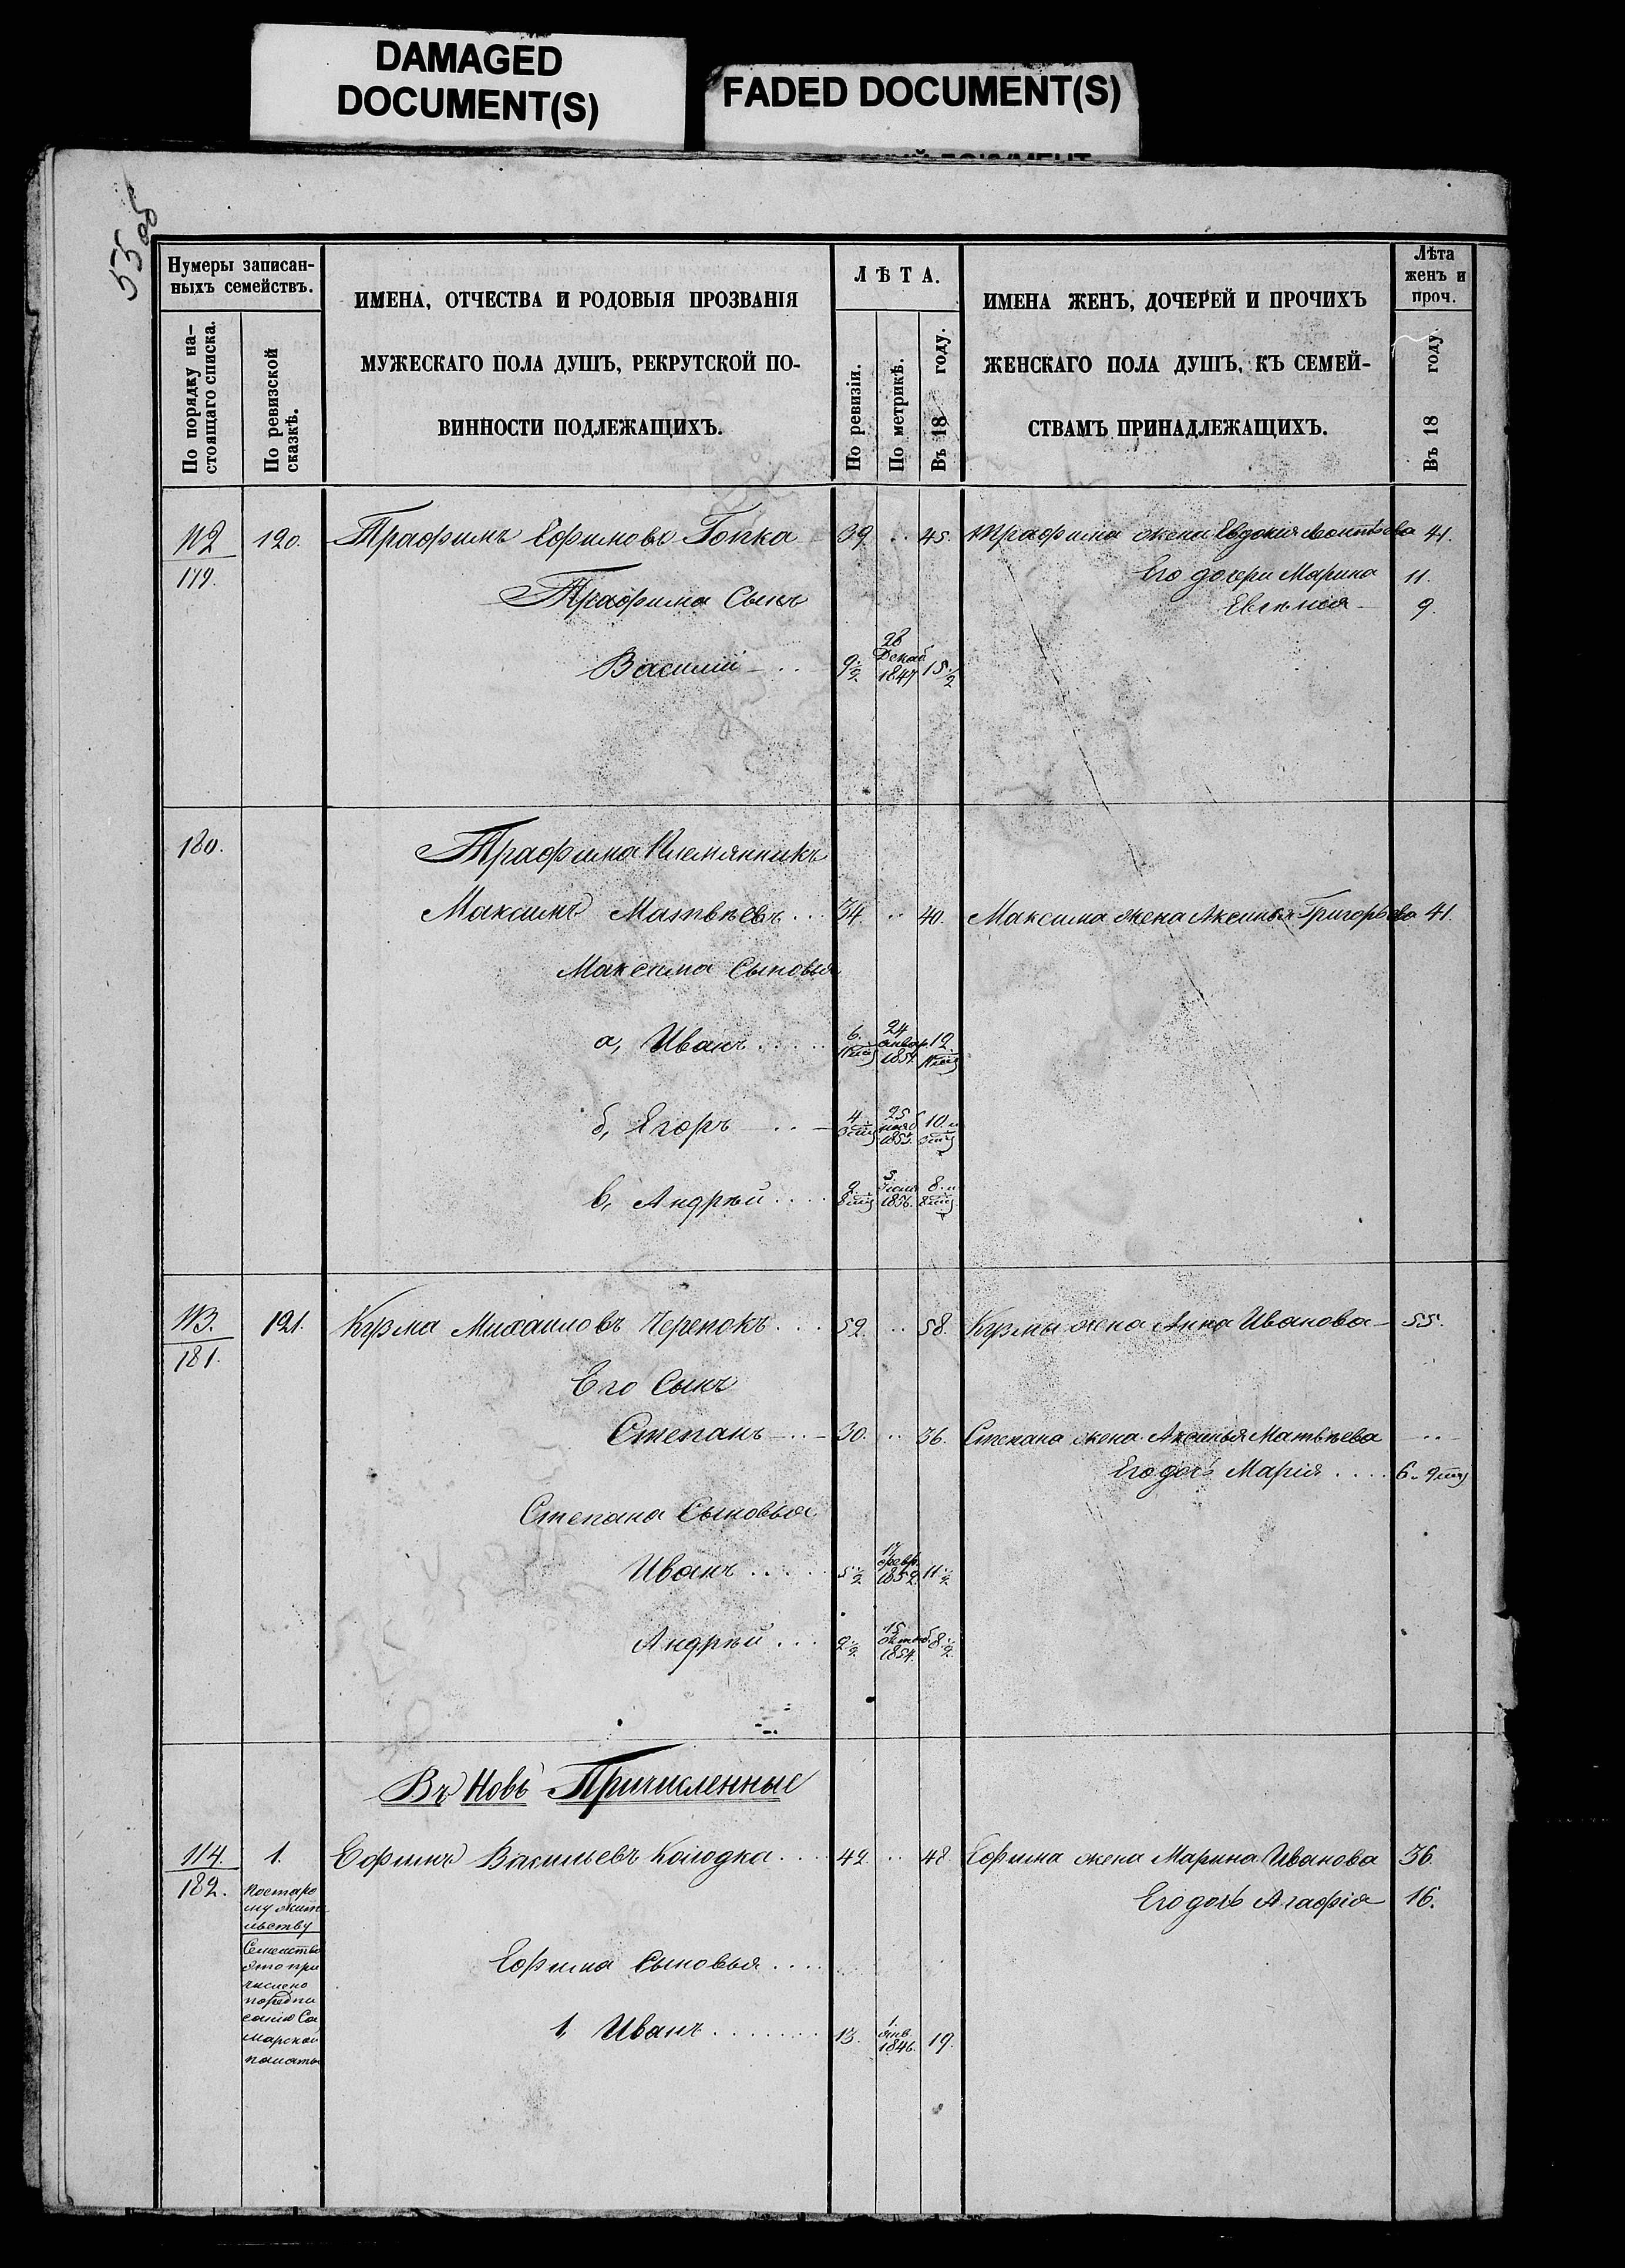 DAMAGED
DOCUMENT(S)
FADED DOCUMENT(S)
53 об
Нумеры записан-
ныхъ семействъ.
По порядку на-
стоящаго списка.
По ревизской
сказкѣ.
ИМЕНА, ОТЧЕСТВА И РОДОВЫЯ ПРОЗВАНІЯ
МУЖЕСКАГО ПОЛА ДУШЪ, РЕКРУТСКОЙ ПО-
ВИННОСТИ ПОДЛЕЖАЩИХЪ.
ЛѢТА.
По ревизіи.
По метрикѣ.
Въ 18 году.
ИМЕНА ЖЕНЪ, ДОЧЕРЕЙ И ПРОЧИХЪ
ЖЕНСКАГО ПОЛА ДУШЪ, КЪ СЕМЕЙ-
СТВАМЪ ПРИНАДЛЕЖАЩИХЪ.
Лѣта
женъ и
проч.
Въ 18 году
112 120. Трафимъ Ефимовъ Гопка 39. .. 45. Трафима жена Евдокия Леонтьева 41.
179. Его дочери Марина 11.
Трафима Сынъ Евгенія 9.
Василій 9 1/2 26 Декаб 1847 15 1/2
180. Трафима Племянникъ
Максимъ Матвѣевъ ... 34. .. 40. Максима жена Аксинья Григорьева 41.
Максима Сыновья
а, Иванъ .... 6. 11 мѣс 24 январ. 1851. 12. 11 мѣс
б, Ягоръ 4. 25 нояб 1853. 10. и
в, Андрѣй .... 2. 8 мѣс 3. 1856. 8. и 8 мѣс
113. 121. Кузма Михаиловъ Черепокъ ... 52. .. 58. Кузмы жена Анна Иванова 55.
181.
Его Сынъ
Степанъ 30. .. 36. Степана жена Аксинья Матвѣева ..
Его дочь Марія .... 6. 9 мѣс
Степана Сыновья
Иванъ .... 5 1/2 17 февр. 1852. 11 1/2
Андрѣй ... 2 1/2 15 октяб 1854. 8 1/2
Въ Новь Причисленные
114. 1. Ефимъ Васильевъ Колодка .... 42 .. 48. Ефима жена Марина Иванова 36.
182. По старо Его дочь Агафія 16.
му жите
льству
Семейство
это при
числено
по предпи
санію Са
марской
палаты
Ефима Сыновья ....
1, Иванъ ....... 13. 1. янв. 1846. 19.